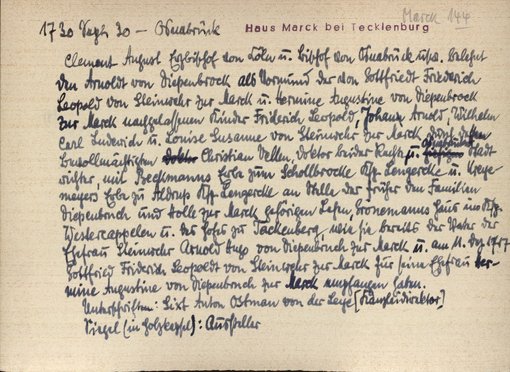 Marck 144
1730 Sept. 30 – Osnabrück
Haus Marck bei Tecklenburg
Clemens August Erzbischof von Cöln u. Bischof von Osnabrück usw. belehnt
den Arnoldt von Diepenbrock als Vormund der von Gottfriedt Friederich
Leopold von Steinwehr zur Marck u. Hermine Augustine von Diepenbrock
zur Marck nachgelassenen Kinder Friderich Leopold, Johann Arnold, Wilhelm
Carl Luderich u. Louise Susanne von Steinwehr zur Marck, durch dessen
Bevollmächtigten Christian Vellen, Doktor beider Rechte u. Osnabrück Stadt
richter, mit Beckmanns Erbe zum Schollbrocke Ksp. Lengercke u.
meyers Erbe zu Aldrup Ksp. Lengercke an Stelle der früher den Familien
Diepenbroich und Solle zur Marck gehörigen Lehen, Cronemanns Haus im Ksp.
Westercappelen u. der Hofes zu Tackenberg, wie sie bereits der Vater der
Ehefrau Steinwehr Arnold von Diepenbroich zur Marck u. am 11. Dez. 1717
Gottfried Friderich Leopoldt von Steinwehr zur Marck für seine Ehefrau Her-
mine Augustine von Diepenbroich zur Marck empfangen haben.
Unterschriften: Sixt Anton Ostman von der Leye (Kanzleidirektor)
Siegel (in Holzkapsel): Aussteller